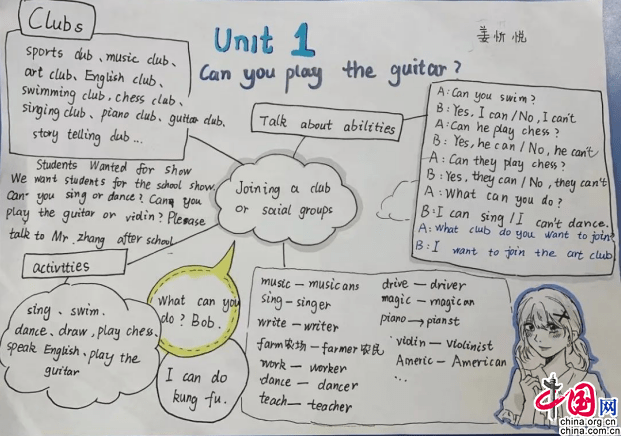 Clubs
sports club、music club、
art club、English club、
swimming club、chess club、
singing club、piano club、guitar club、
story telling club ...
Unit 1
Can you play the guitar?
姜忻悦
Talk about abilities
A: Can you swim?
B: Yes, I can / No, I can't
A: Can he play chess?
B: Yes, he can / No, he can't
A: Can they play chess?
B: Yes, they can / No, they can't
A: What can you do?
B: I can sing / I can't dance.
A: What club do you want to join?
B: I want to join the art club
Students Wanted for show
We want students for the school show
Can you sing or dance? Can you
play the guitar or violin? Please
talk to Mr. Zhang after school
Joining a club
or social groups
activities
sing、swim.
dance、draw、play chess.
speak English、play the
guitar
What can you
do? Bob.
I can do
kung fu.
music — musicans
sing — singer
write — writer
farm农场 — farmer农民
work — worker
dance — dancer
teach — teacher
drive — driver
magic — magican
piano → pianst
violin — violinist
Americ — American
...
中国网
china.org.cn
china.com.cn